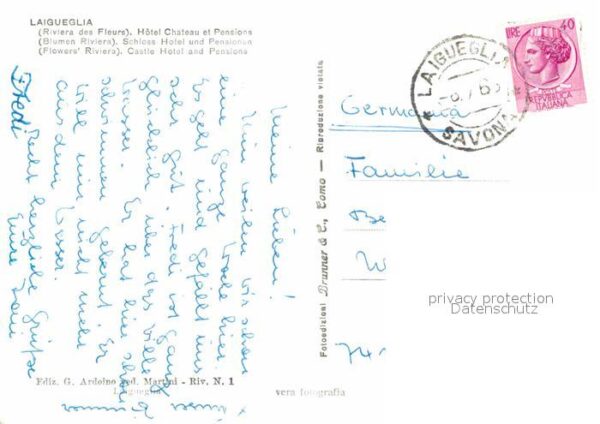 LAIGUEGLIA
(Riviera des Fleurs), Hôtel Chateau et Pensions
(Blumen Riviera), Schloss Hotel und Pensionen
(Flowers' Riviera), Castle Hotel and Pensions
LIRE 40
REPUBBLICA
ITALIANA
* LAIGUEGLIA *
SAVONA
Germania
Familie
Meine Lieben!
Nun weilen wir schon
eine ganze Woche hier.
Es geht und gefällt uns
sehr gut. Fredi ist ganz
glücklich über das viele
Wasser. Er hat hier
schwimmen gelernt u.
will nun nicht mehr
aus dem Wasser.
Recht herzliche Grüße
Eure
Fredi
immer
Fotoedizioni Brunner & C., Como — Riproduzione vietata
Ediz. G. Ardoino ved. Martini - Riv. N. 1
Laigueglia
vera fotografia
privacy protection
Datenschutz